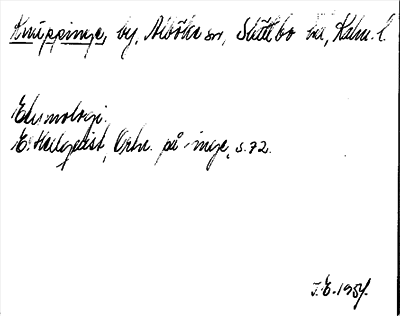 Knuppinge, by, Aiböke sn, Slättbo hd, Kalm. l.
Etymologi:
E. Hellquist, Ortn. på -inge, s. 72.
J.E. 1954.